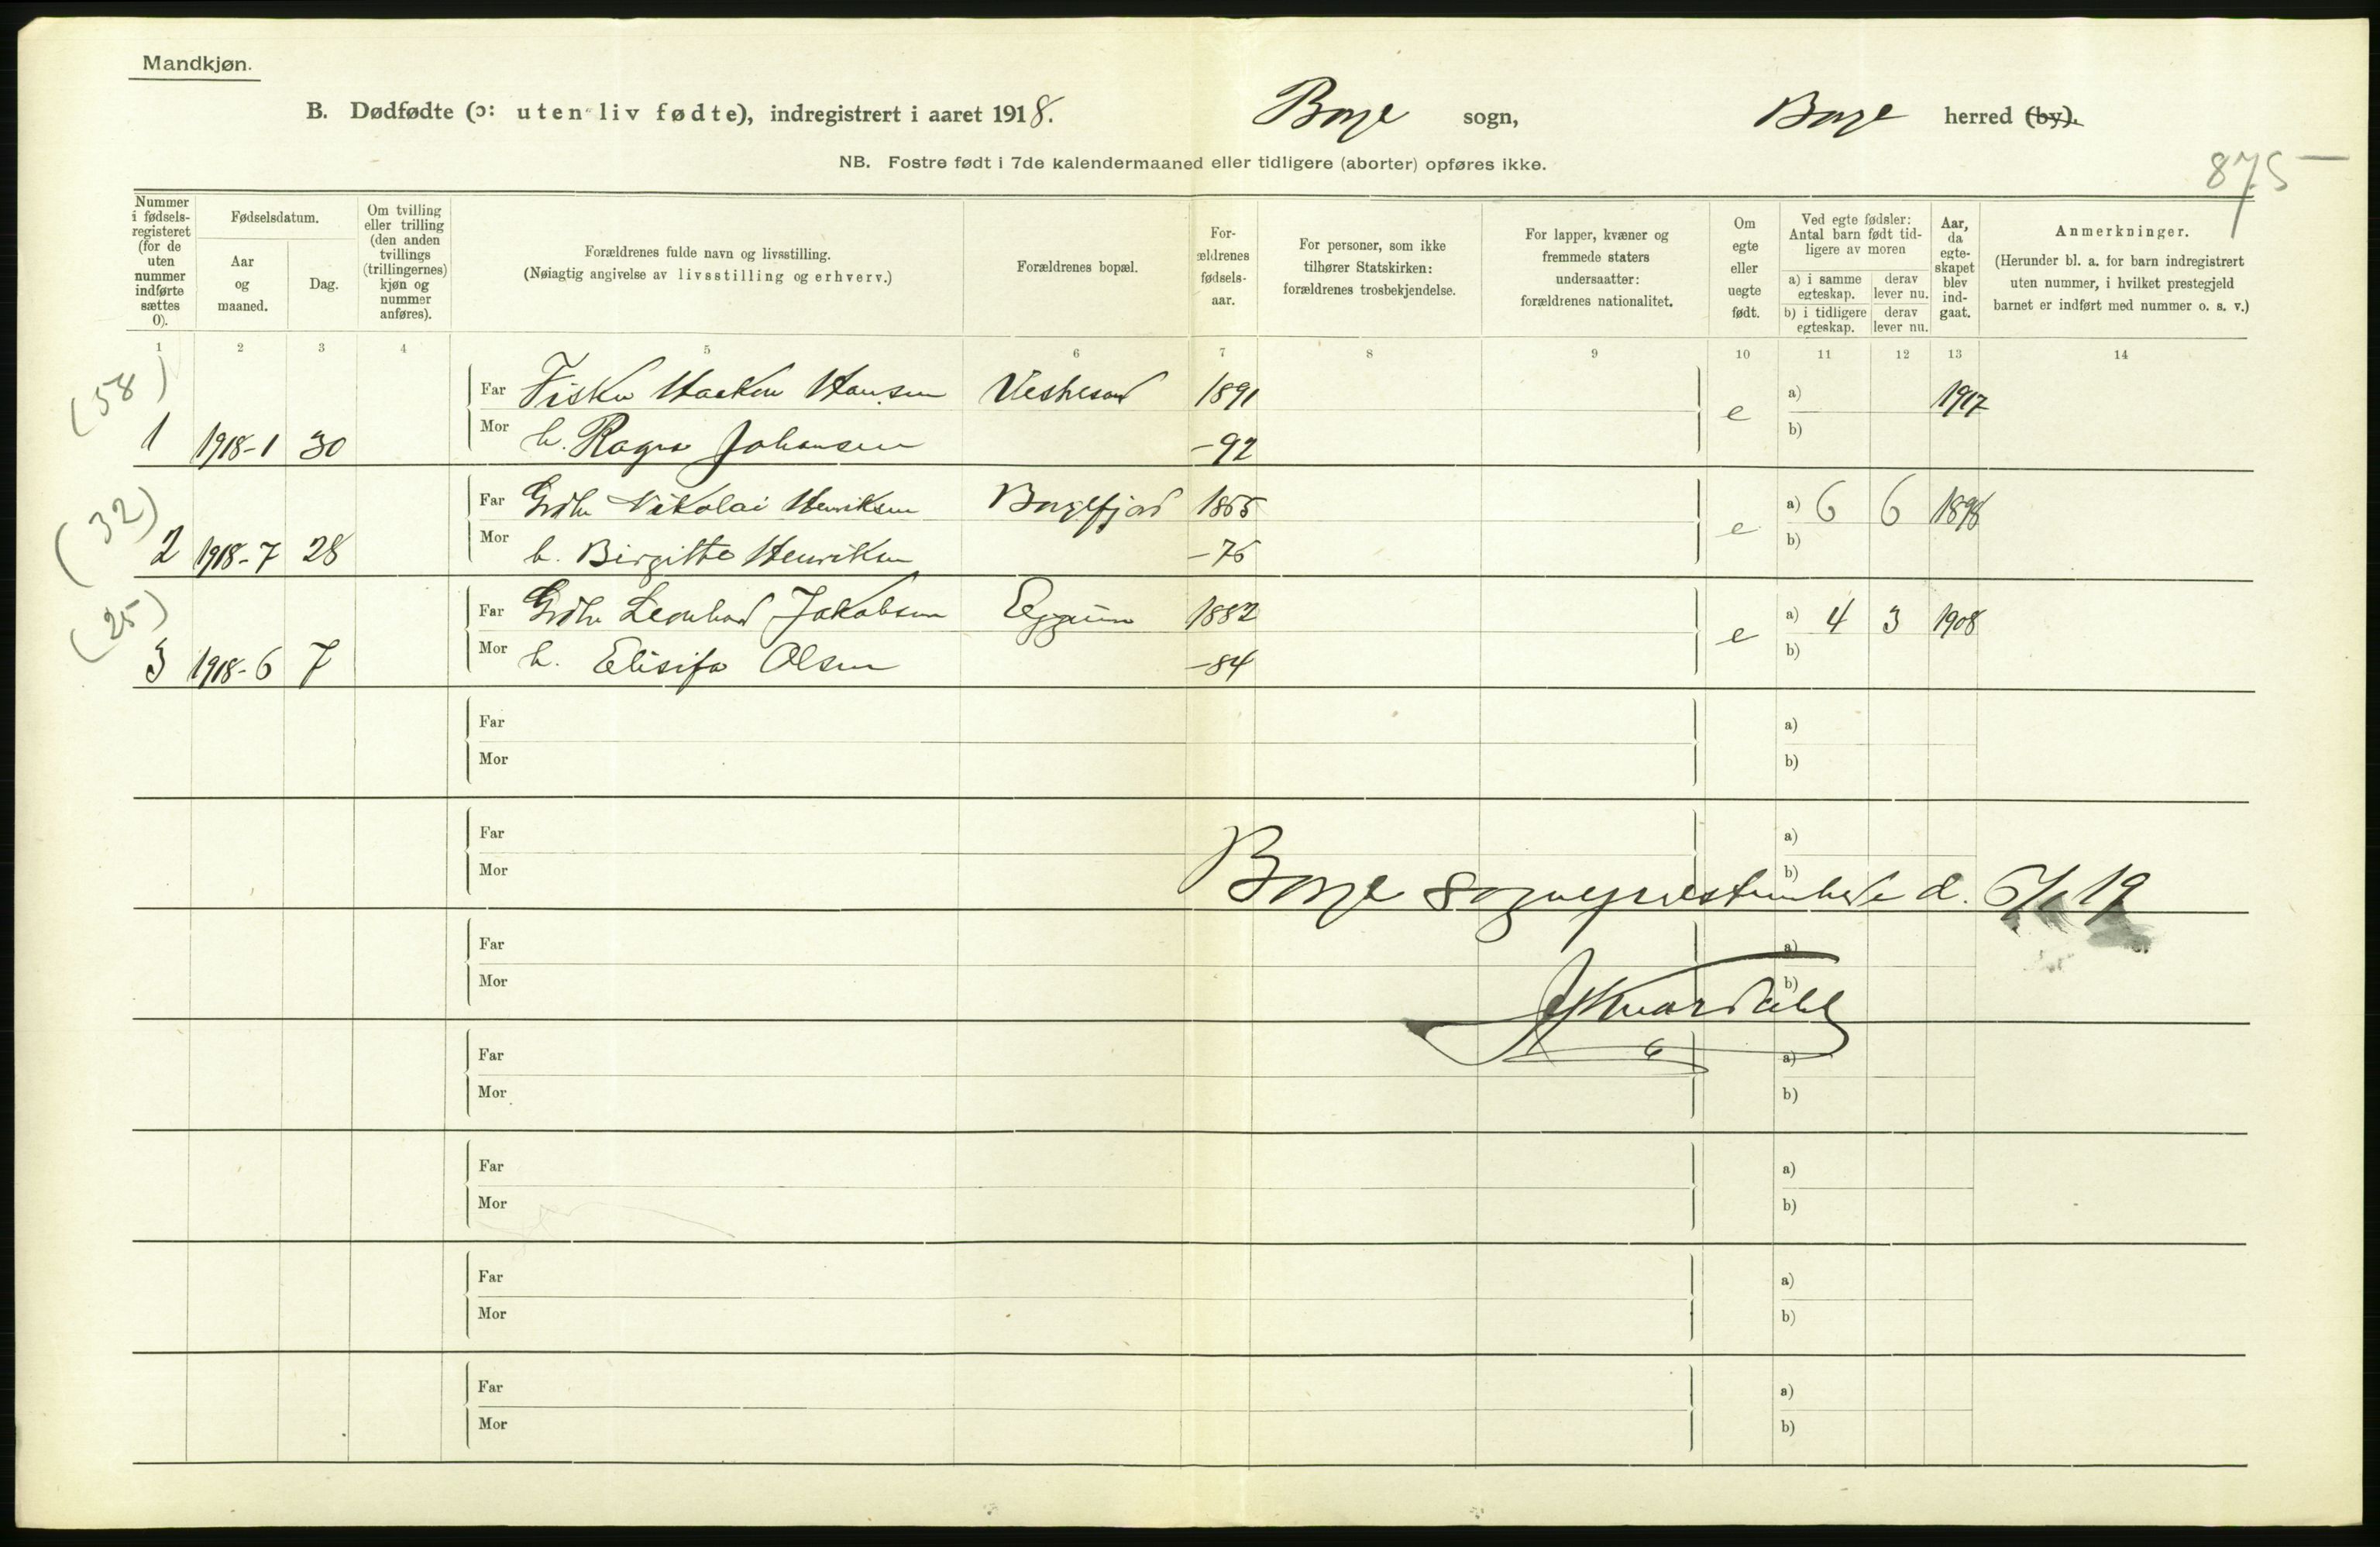 Mandkjøn.
B. Dødfødte (ɔ: uten liv fødte), indregistrert i aaret 1918. Borge sogn, Borge herred (by).
NB. Fostre født i 7de kalendermaaned eller tidligere (aborter) opføres ikke.
875
Nummer i fødselsregisteret (for de uten nummer indførte sættes 0).
Fødselsdatum.
Aar og maaned.
Dag.
Om tvilling eller trilling (den anden tvillings (trillingernes) kjøn og nummer anføres).
Forældrenes fulde navn og livsstilling.
(Nøiagtig angivelse av livsstilling og erhverv.)
Forældrenes bopæl.
Forældrenes fødselsaar.
For personer, som ikke tilhører Statskirken: forældrenes trosbekjendelse.
For lapper, kvæner og fremmede staters undersaatter: forældrenes nationalitet.
Om egte eller uegte født.
Ved egte fødsler: Antal barn født tidligere av moren
a) i samme egteskap. derav lever nu.
b) i tidligere egteskap. derav lever nu.
Aar, da egteskapet blev indgaat.
Anmerkninger.
(Herunder bl. a. for barn indregistrert uten nummer, i hvilket prestegjeld barnet er indført med nummer o. s. v.)
1 2 3 4 5 6 7 8 9 10 11 12 13 14
(58)
Far Fisker Haakon Hansen 1891 e a) 1917
1 1918-1 30 Mor h. Ragna Johansen -92 b)
(32)
Far Grdbr Nikolai Henriksen Borgefjord a) 6 6 1898
2 1918-7 28 Mor h. Birgitte Henriksen e b)
(25)
Far Grdbr Leonhard Jakobsen Eggum 1882 a) 4 3 1908
3 1918-6 7 Mor h. Elisifa Olsen -84 e b)
Far a)
Mor b)
Far a)
Mor b)
Borge sogneprestembede d. 19
Far a)
Mor b)
Far a)
Mor b)
Far a)
Mor b)
Far a)
Mor b)
Far a)
Mor b)